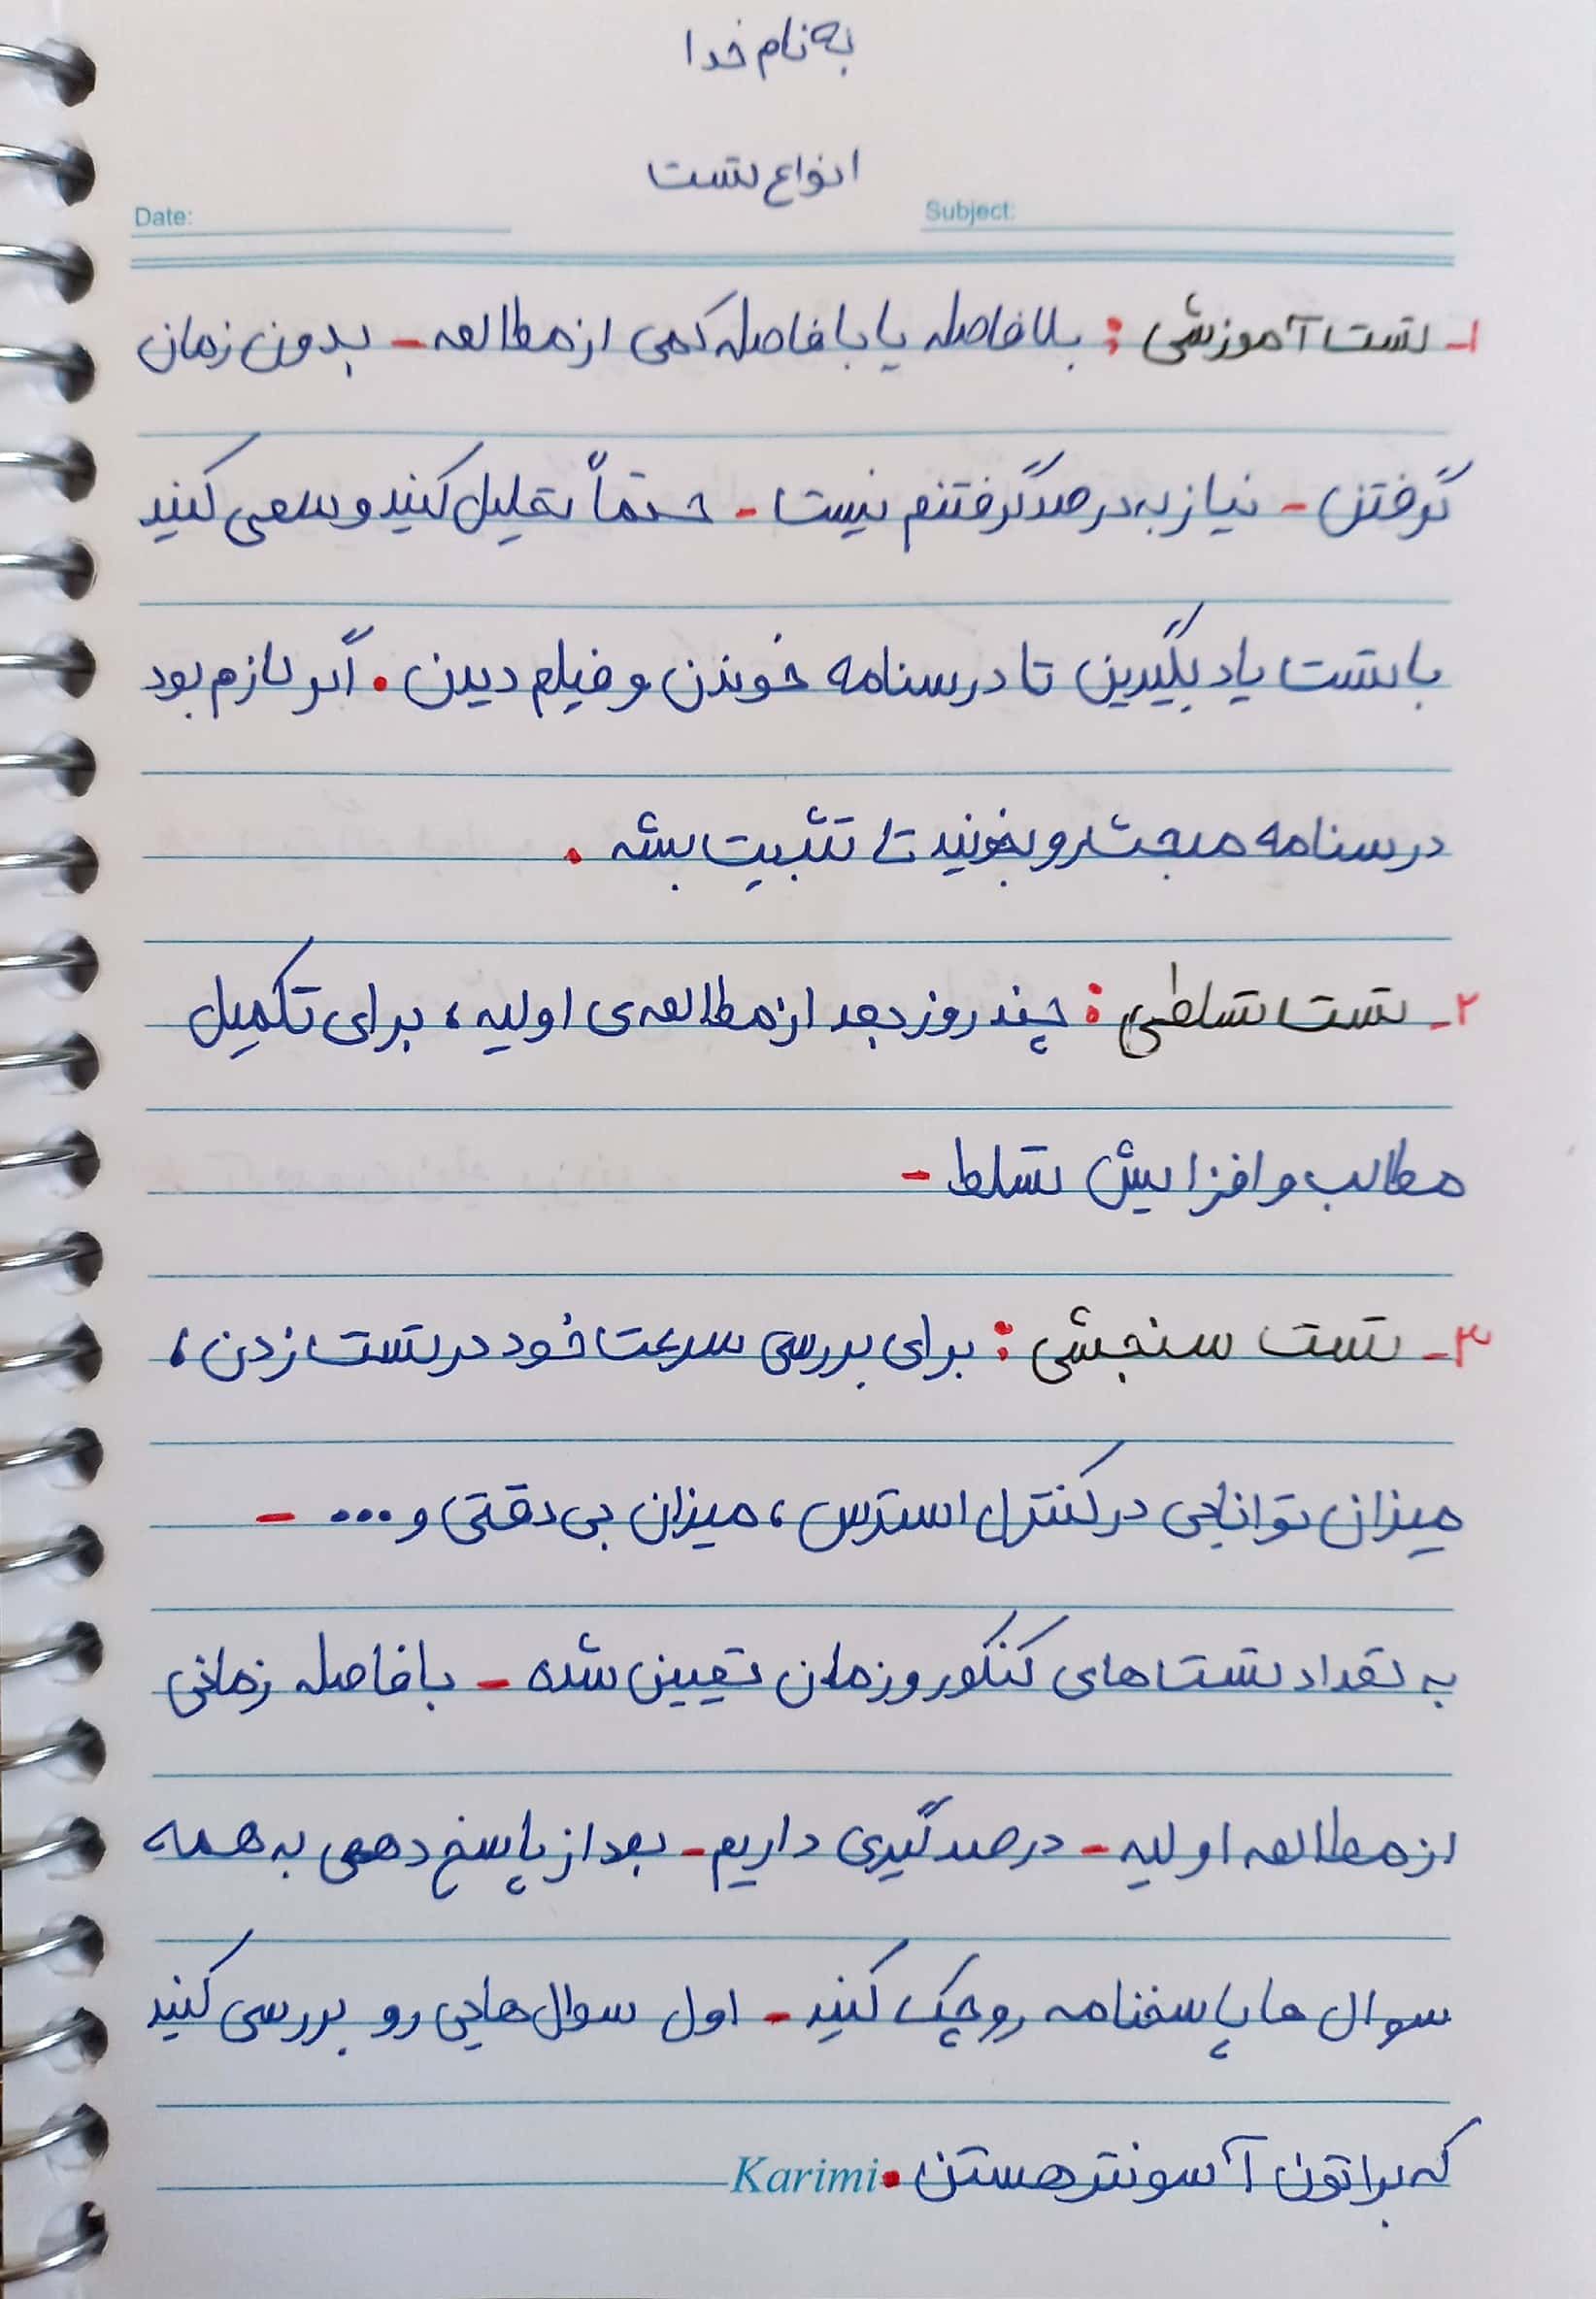 به نام خدا
انواع تست
Date:
Subject:
۱- تست آموزشی : بلافاصله یا با فاصله کمی از مطالعه - بدون زمان
گرفتن - نیاز به درصد گرفتنم نیست - حتماً تحلیل کنید و سعی کنید
با تست یاد بگیرین تا درسنامه خوندن و فیلم دیدن . اگر لازم بود
درسنامه مبحث رو بخونید تا تثبیت بشه .
۲- تست تسلطی : چند روز بعد از مطالعه‌ی اولیه ، برای تکمیل
مطالب و افزایش تسلط -
۳- تست سنجشی : برای بررسی سرعت خود در تست زدن ،
میزان توانایی در کنترل استرس ، میزان بی دقتی و ... -
به تعداد تست های کنکور و زمان تعیین شده - با فاصله زمانی
از مطالعه اولیه - درصد گیری داریم - بعد از پاسخ دهی به همه
سوال ها پاسخنامه رو چک کنید - اول سوال هایی رو بررسی کنید
که براتون آسونتر هستن . Karimi